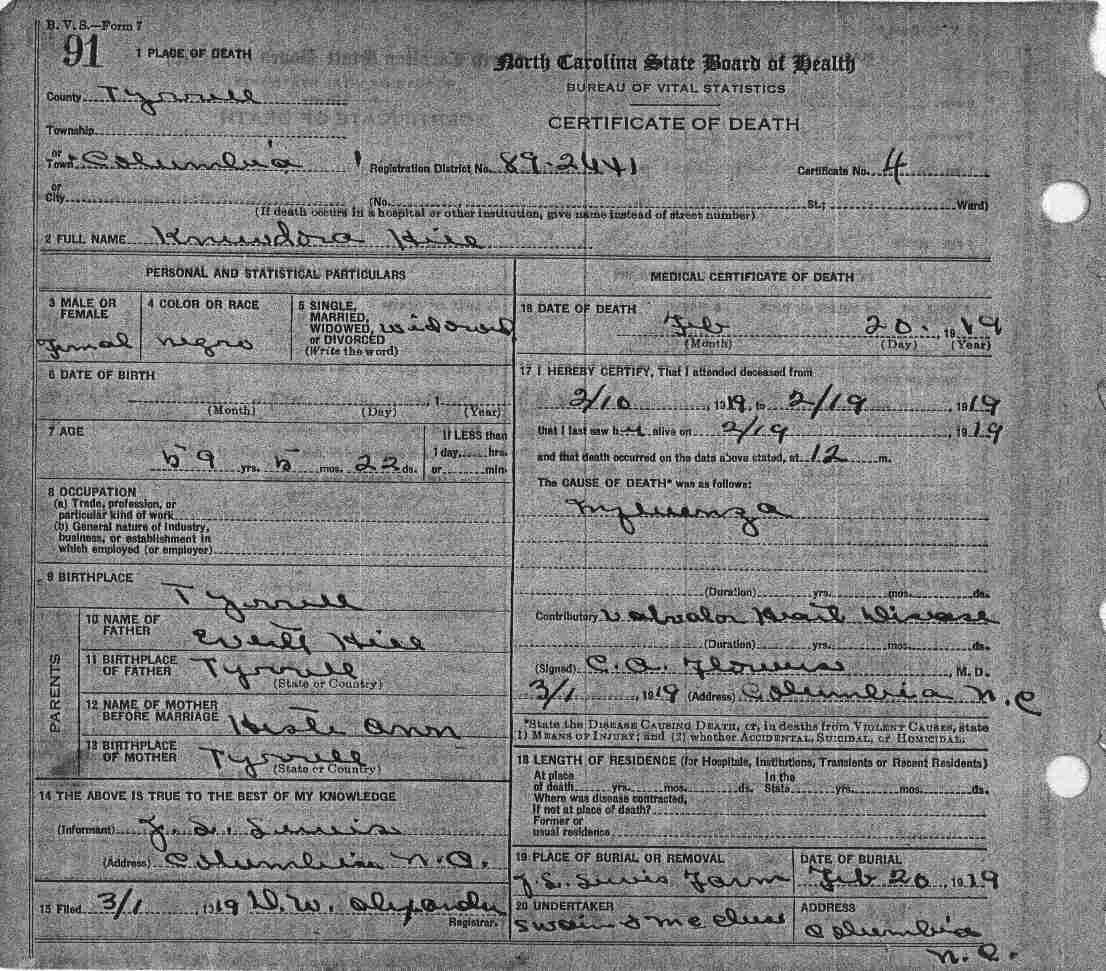 B. V. S.—Form 7
91
1 PLACE OF DEATH
North Carolina State Board of Health
BUREAU OF VITAL STATISTICS
CERTIFICATE OF DEATH
County Tyrrell
Township
or
Town Columbia
Registration District No. 89-2441
Certificate No. 4
or
City
(No. St.; Ward)
(If death occurs in a hospital or other institution, give name instead of street number)
2 FULL NAME Hill
PERSONAL AND STATISTICAL PARTICULARS
3 MALE OR FEMALE
Femal
4 COLOR OR RACE
negro
5 SINGLE,
MARRIED,
WIDOWED,
or DIVORCED
(Write the word)
widowed
6 DATE OF BIRTH
, 1
(Month) (Day) (Year)
7 AGE
59 yrs. 5 mos. 22 ds.
If LESS than
1 day, hrs.
or min.
8 OCCUPATION
(a) Trade, profession, or
particular kind of work
(b) General nature of industry,
business, or establishment in
which employed (or employer)
9 BIRTHPLACE
Tyrrell
PARENTS
10 NAME OF FATHER
Evert Hill
11 BIRTHPLACE OF FATHER
Tyrrell
(State or Country)
12 NAME OF MOTHER BEFORE MARRIAGE
Ann
13 BIRTHPLACE OF MOTHER
Tyrrell
(State or Country)
14 THE ABOVE IS TRUE TO THE BEST OF MY KNOWLEDGE
(Informant) J. S. Lewis
(Address) Columbia N.C.
15 Filed 3/1 1919 D. W. Alexander
Registrar.
MEDICAL CERTIFICATE OF DEATH
16 DATE OF DEATH
Feb 20. , 1919
(Month) (Day) (Year)
17 I HEREBY CERTIFY, That I attended deceased from
2/10 , 1919, to 2/19 , 1919
that I last saw h alive on 2/19 , 1919
and that death occurred on the date above stated, at 12 m.
The CAUSE OF DEATH* was as follows:
Influenza
(Duration) yrs. mos. ds.
Contributory Valvalor Heart Disease
(Duration) yrs. mos. ds.
(Signed) C. A. Flowers, M. D.
3/1 , 1919 (Address) Columbia N.C
*State the DISEASE CAUSING DEATH, or, in deaths from VIOLENT CAUSES, state
1) MEANS OF INJURY; and (2) whether ACCIDENTAL, SUICIDAL, or HOMICIDAL.
18 LENGTH OF RESIDENCE (for Hospitals, Institutions, Transients or Recent Residents)
At place In the
of death yrs. mos. ds. State yrs. mos. ds.
Where was disease contracted,
If not at place of death?
Former or
usual residence
19 PLACE OF BURIAL OR REMOVAL
J. S. Lewis Farm
DATE OF BURIAL
Feb 20 , 1919
20 UNDERTAKER
Swain & McClees
ADDRESS
Columbia
N.C.